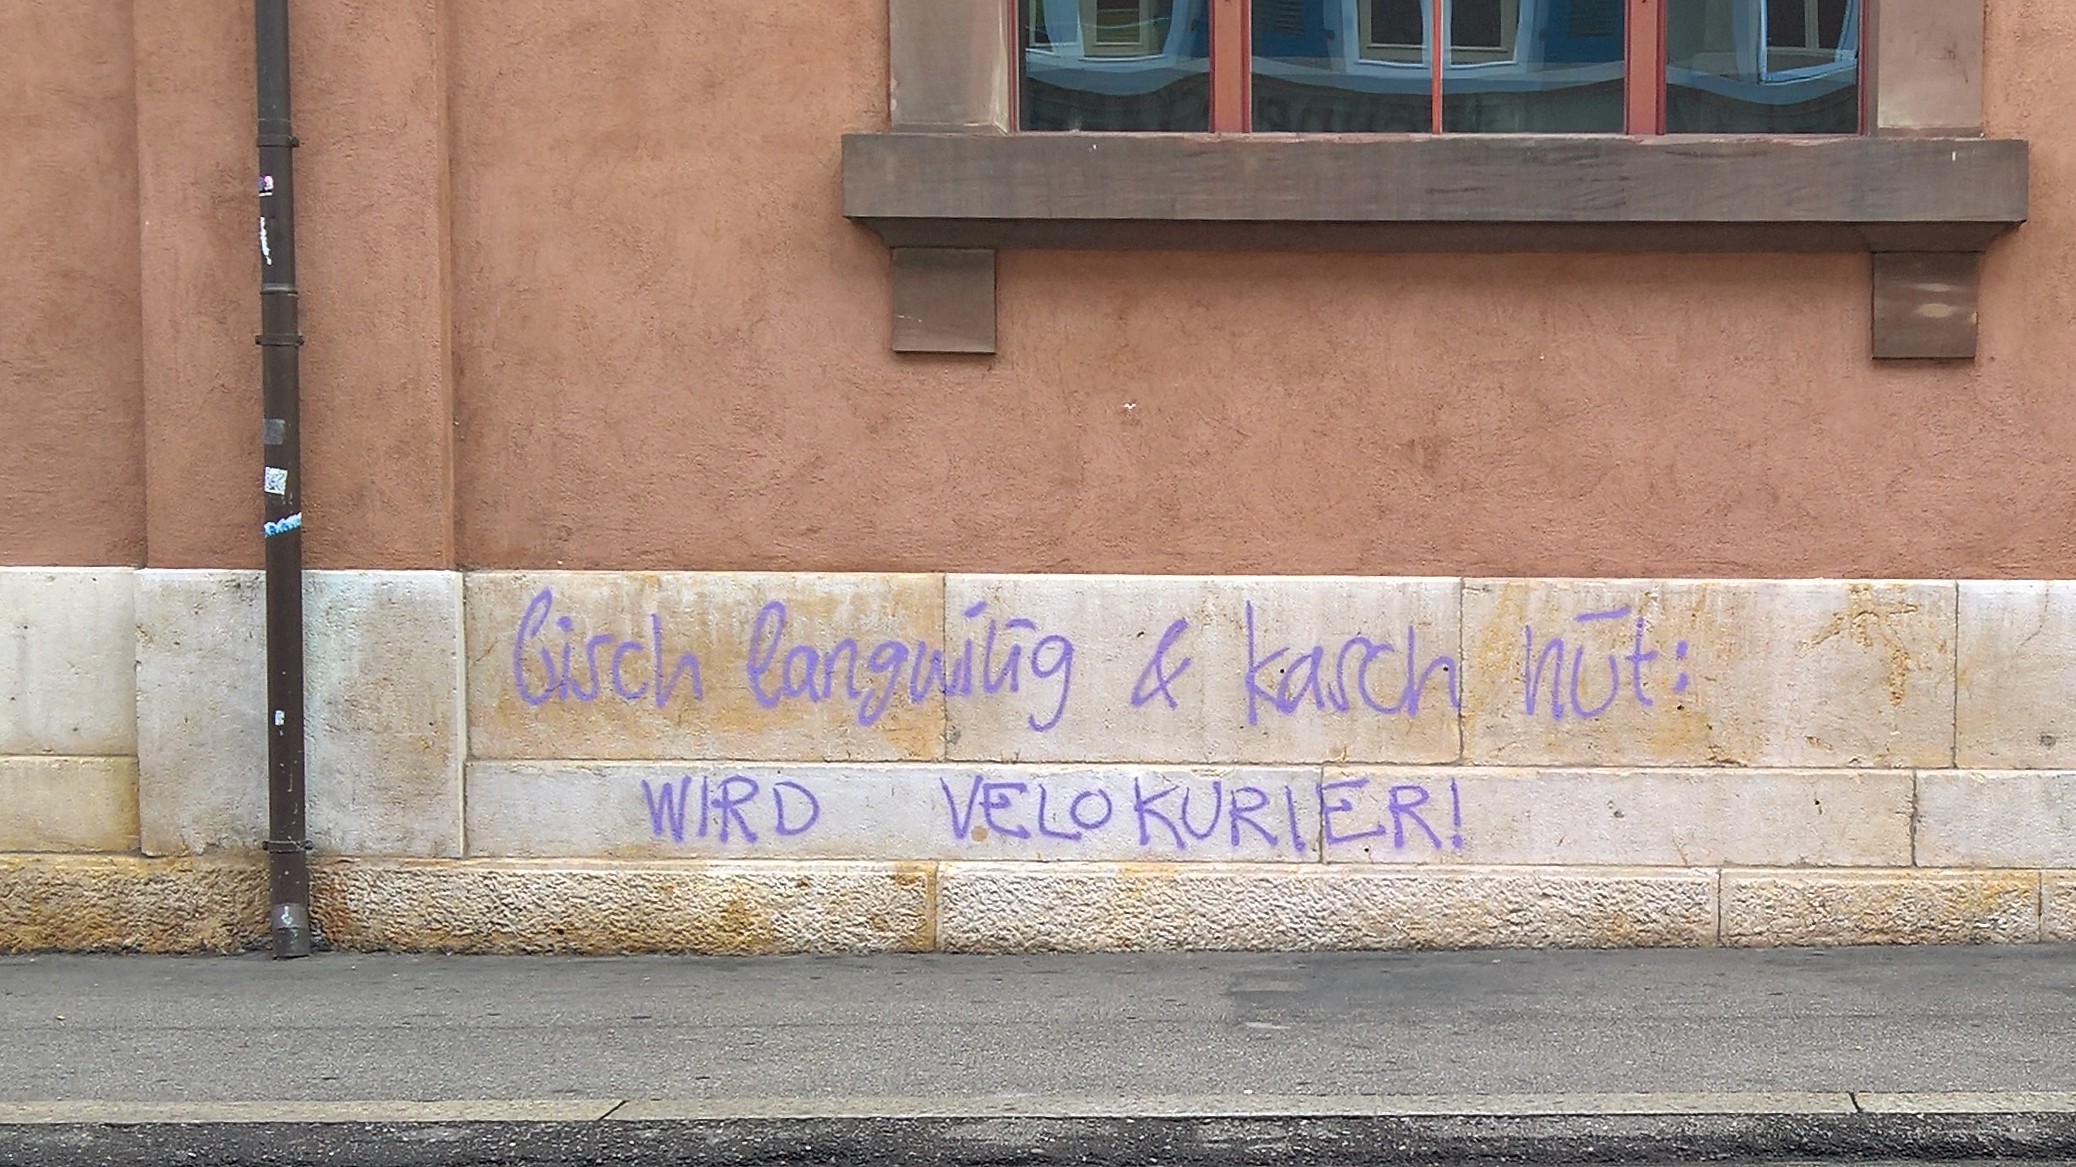 bisch langwilig & kasch nüt:
WIRD VELOKURIER!